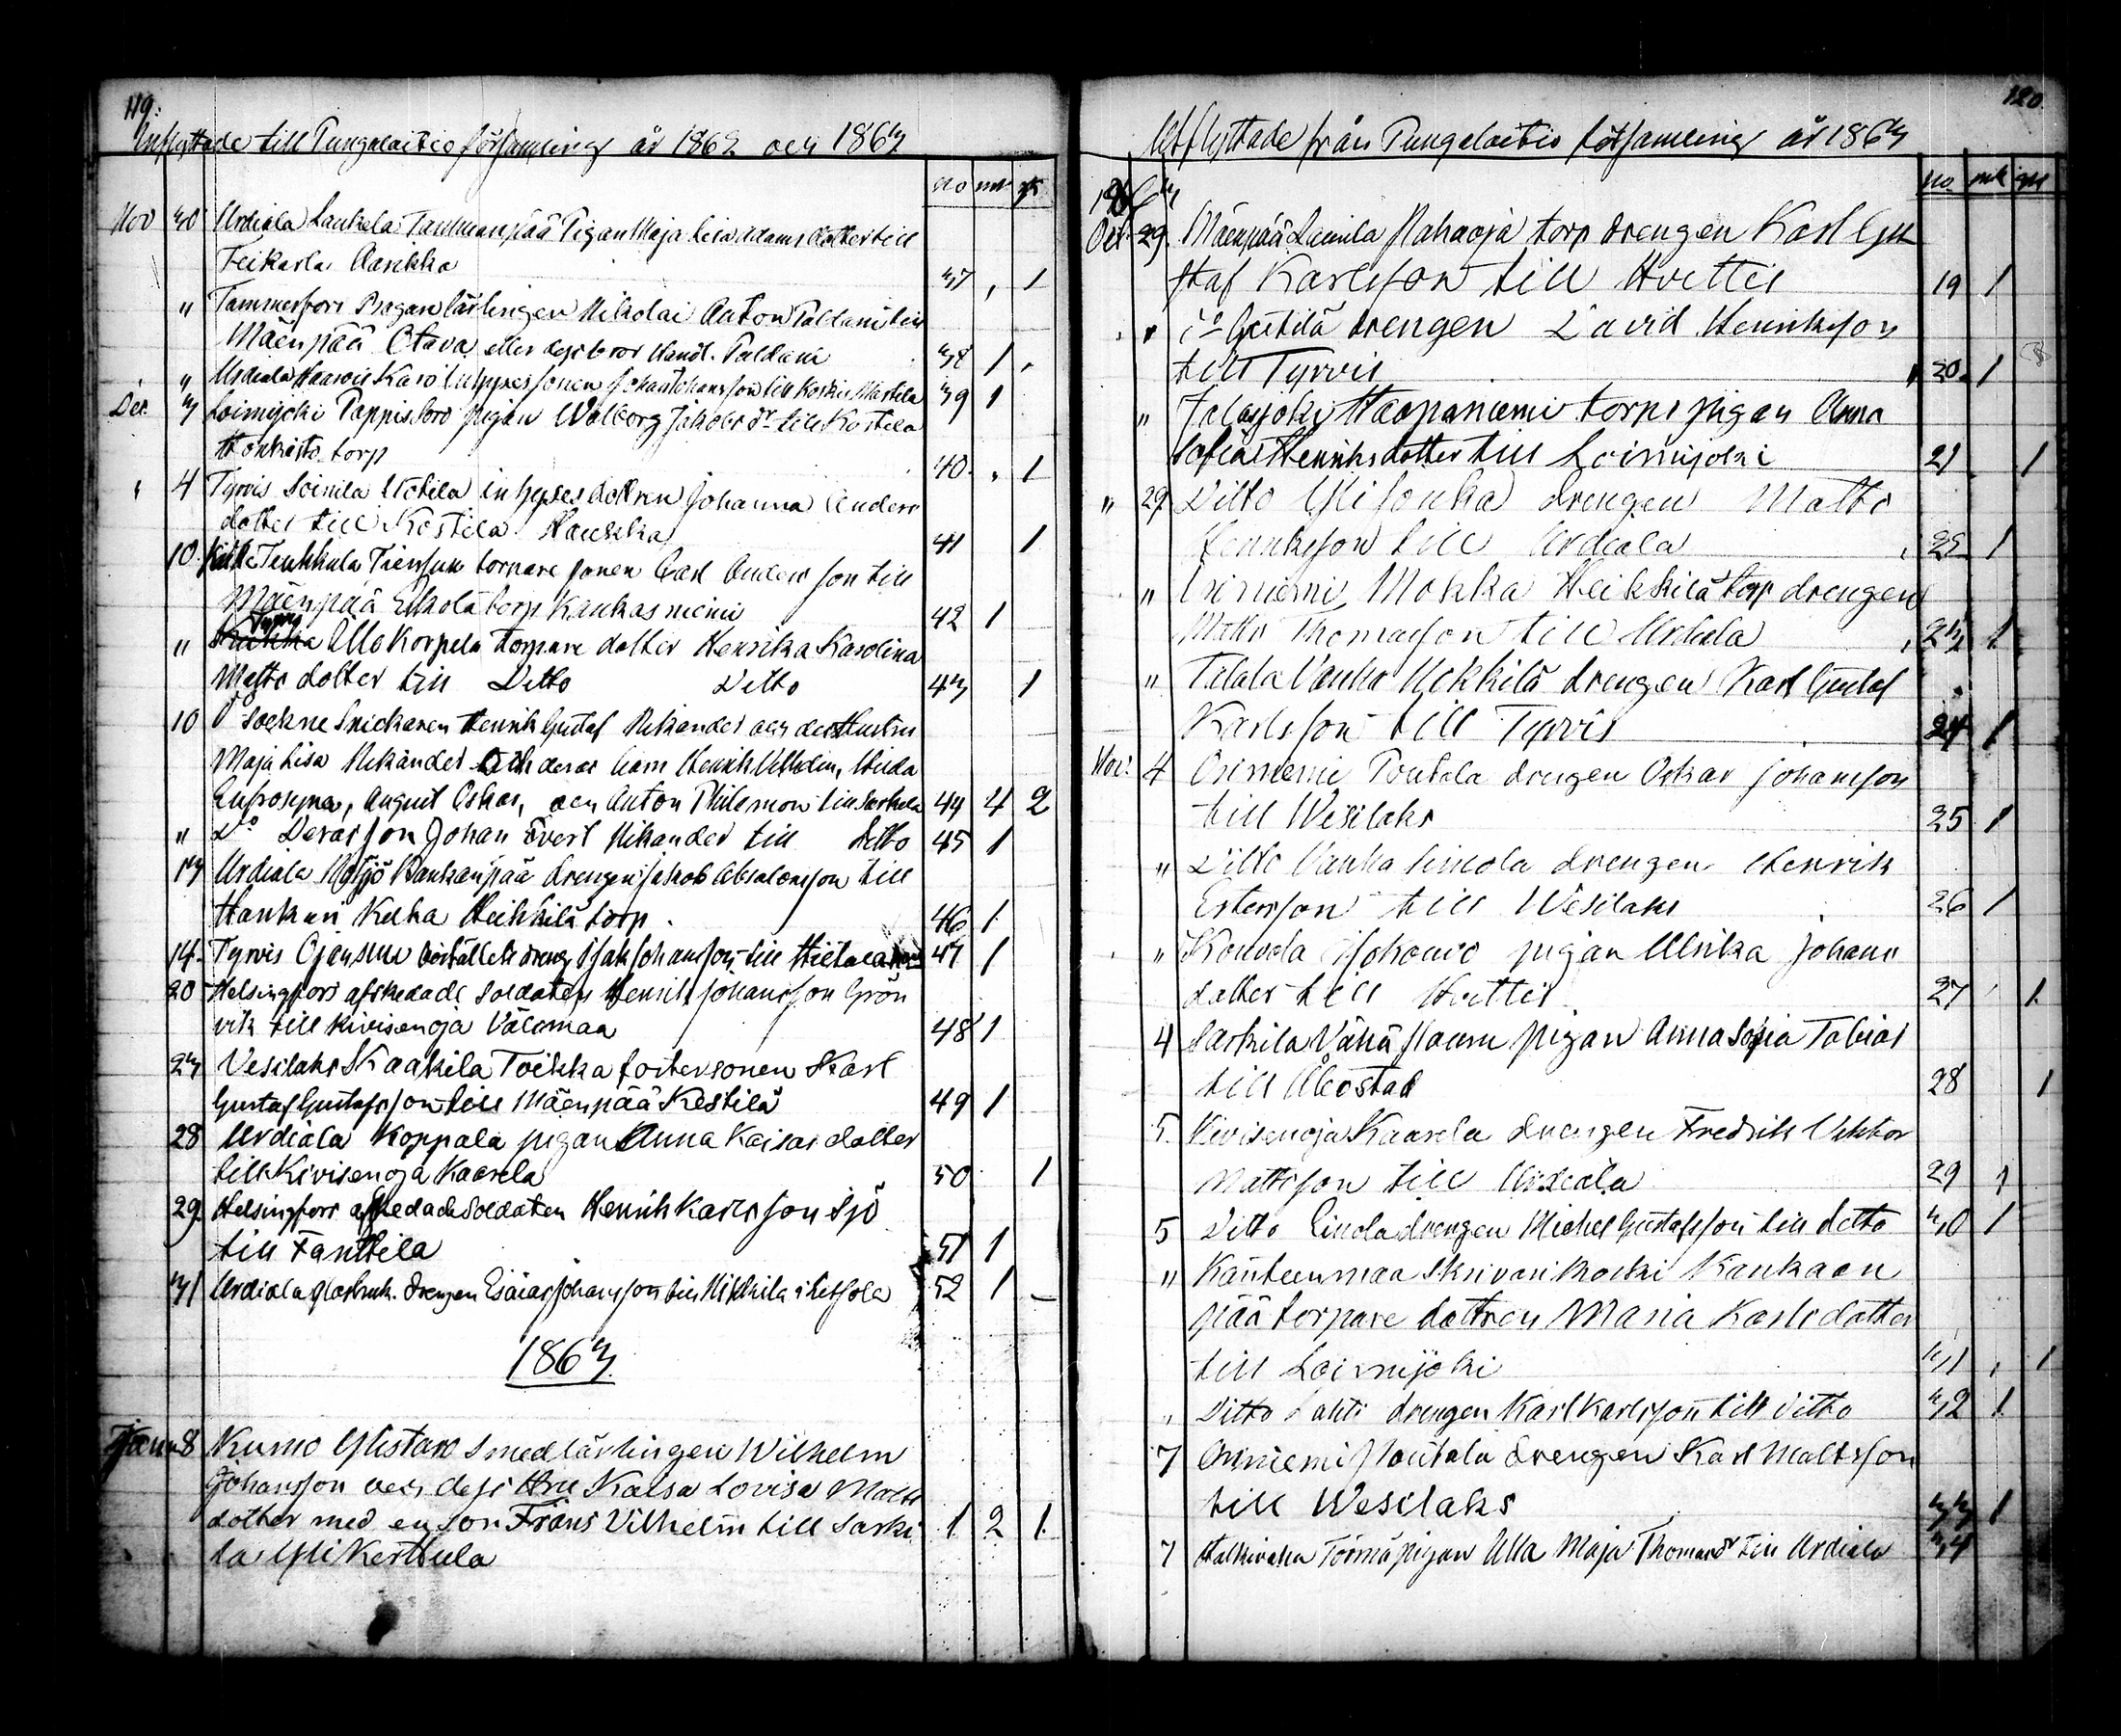 119.
Inflyttade till Pungalaitio församling år 1862 och 1863
no mk qk
Nov 30 Urdiala Laukela Tammenpää Pigan Maja Lisa Adams dotter till
Teikarla Aarikka 37 , 1
" Tammerfors Bagarelärlingen Nikolai Anton Paldani till
Mäenpää Otava eller dess bror Handl. Paldani 38 1 ,
" Urdiala Karoli Johan Johansson till Koskis Mäkilä 39 1
Dec. 3 Loimijoki Pappis pigan Walborg Jakobs dr till Kostila
Honkisto torp 40. , 1
4 Tyrvis Soinila inhyses dottren Johanna Anders
dotter till Kostila Haukka 41 1
10. Kiikka Tiensuu torpare sonen Carl Anders son till
Mäenpää Eskola torp Kankasniemi 42 1
Tyrvis
" Kiikka Ällo Korpela torpare dotter Henrika Karolina
Matts dotter till Ditto Ditto 43 1
10 I Sockne Snickaren Henrik Gustaf Nikander och dess Hustru
Maja Lisa Nikander och deras barn Henrik Vilhelm, Hilda
Eufrosyna, August Oskar, och Anton Philemon till Sarkila 44 4 2
" Do Deras son Johan Evert Nikander till Ditto 45 1
13 Urdiala Nutajö Kankanpää drengen Jakob Absalonsson till
Hankuri Keka Heikkilä torp. 46 1
14. Tyrvis Ojansuu dreng Isak Johansson till Hietala 47 1
20 Helsingfors afskedade Soldaten Henrik Johansson Grön
vik till Kivisenoja Välimaa 48 1
23 Vesilaks Kaakila Toikka fostersonen Karl
Gustaf Gustafsson till Mäenpää Kestilä 49 1
28 Urdiala Koppala pigan Anna Kaisas dotter
till Kivisenoja Kaarela 50 1
29. Helsingfors afskedade Soldaten Henrik Karlsson Sjö
till Fanttila 51 1
31 Urdiala glasbruk. drengen Esaias Johansson till Mikkila i Leisola 52 1 –
1863.
Janu 8 Kumo Ylistaro Smedlärlingen Wilhelm
Johansson och dess Hru Kaisa Lovisa Matts
dotter med en son Frans Vilhelm till Sarki
la Yli Kerttula 1 2 1.
120.
Utflyttade från Pungalaitio församling år 1863
no. mk qk
1863
Oct. 29. Mäenpää Laurila Nahaoja torp drengen Karl Gu
staf Karlsson till Hvittis 19 1
" do Gritilä drengen David Henriksson
till Tyrvis 20. 1
" Jalasjoki Haapaniemi torps pigan Anna
Sofia Henriksdotter till Loimijoki 21 1
" 29 Ditto Yli drengen Matts
Henriksson till Urdiala 22 1
" Oriniemi Mokka Heikkilä torp drengen
Matts Thomasson till Urdiala 23 1
" Talala Vanha Uckkilä drengen Karl Gustaf
Karlsson till Tyrvis 24 1
Nov. 4 Oriniemi Poutala drengen Oskar Johansson
till Wesilaks 25 1
" Ditto Vanha Simola drengen Henrik
Estersson till Wesilaks 26 1
" Kouvola pigan Ulrika Johans
dotter till Hvittis 27 1
4 Sarkila Vähä Hauru pigan Anna Sofia Tobias
till Åbo stad 28 1
5. Kivisenoja Kaarela drengen Fredrik Viktor
Mattsson till Urdiala 29 1
5 Ditto Einola drengen Michel Gustafsson till Ditto 30 1
" Kanteenmaa Skrivarikoski Kankaan
pää torpare dottren Maria Karls dotter
till Loimijoki 31 , 1
" Ditto Lahti drengen Karl Karlsson till Ditto 32 1
7 Oriniemi Poutala drengen Karl Mattsson
till Wesilaks 33 1
7 Halkivaha Törmä pigan Ulla Maja Thomas dr till Urdiala 34